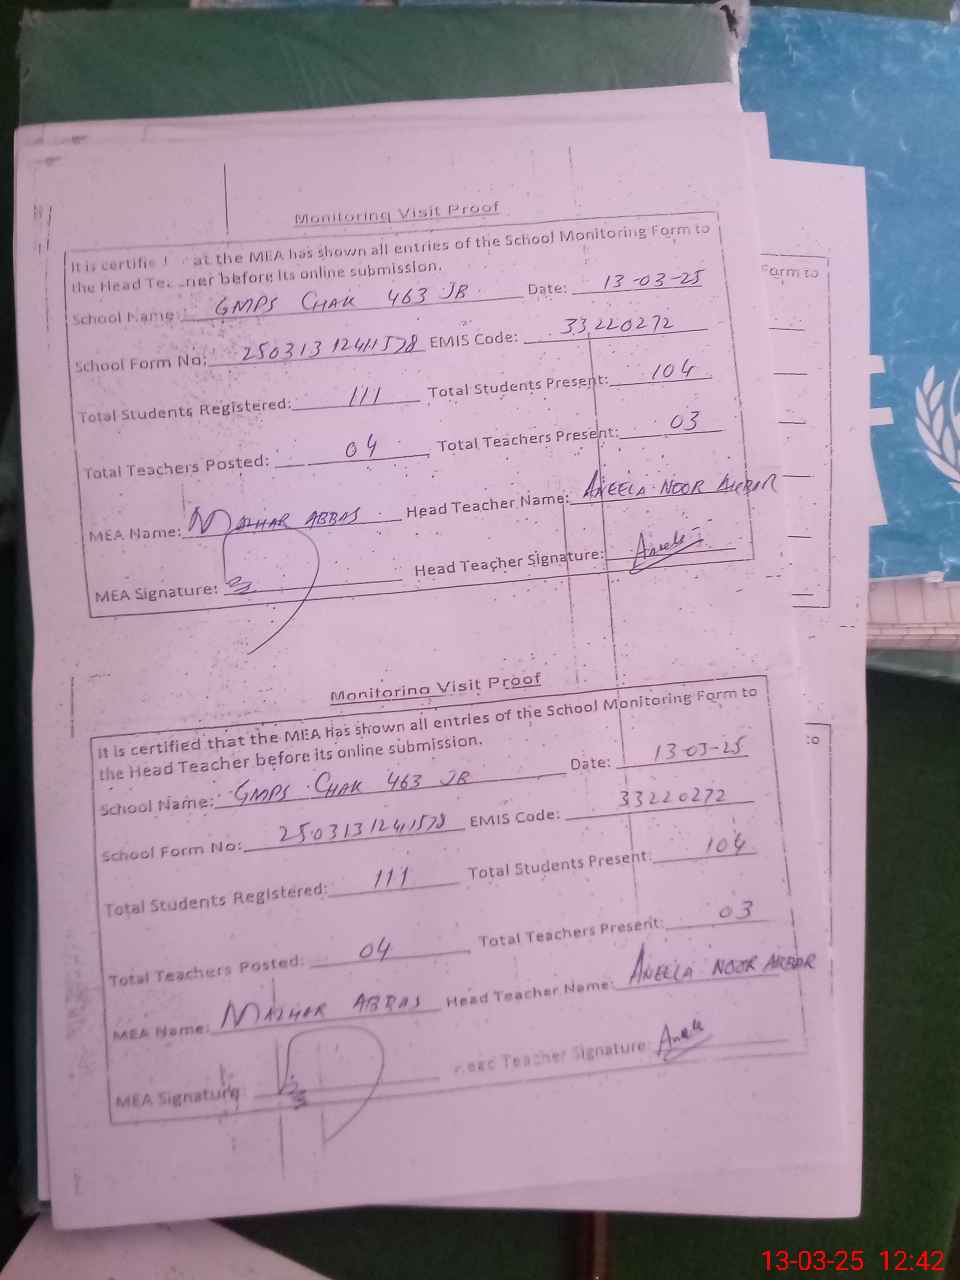 Monitoring Visit Proof
It is certifie at the MEA has shown all entries of the School Monitoring Form to
the Head Teacher before its online submission.
School Name: GMPS CHAK 463 JB Date: 13-03-25
School Form No: 25031312411578 EMIS Code: 33220272
Total Students Registered: 111 Total Students Present: 104
Total Teachers Posted: 04 Total Teachers Present: 03
MEA Name: MAZHAR ABBAS Head Teacher Name: ANEELA NOOR AKBAR
MEA Signature: Head Teacher Signature:
Form to
Monitoring Visit Proof
It is certified that the MEA has shown all entries of the School Monitoring Form to
the Head Teacher before its online submission.
School Name: GMPS CHAK 463 JB Date: 13-03-25
School Form No: 25031312411578 EMIS Code: 33220272
Total Students Registered: 111 Total Students Present: 104
Total Teachers Posted: 04 Total Teachers Present: 03
MEA Name: MAZHAR ABBAS Head Teacher Name: ANEELA NOOR AKBAR
MEA Signature: Head Teacher Signature:
to
13-03-25 12:42